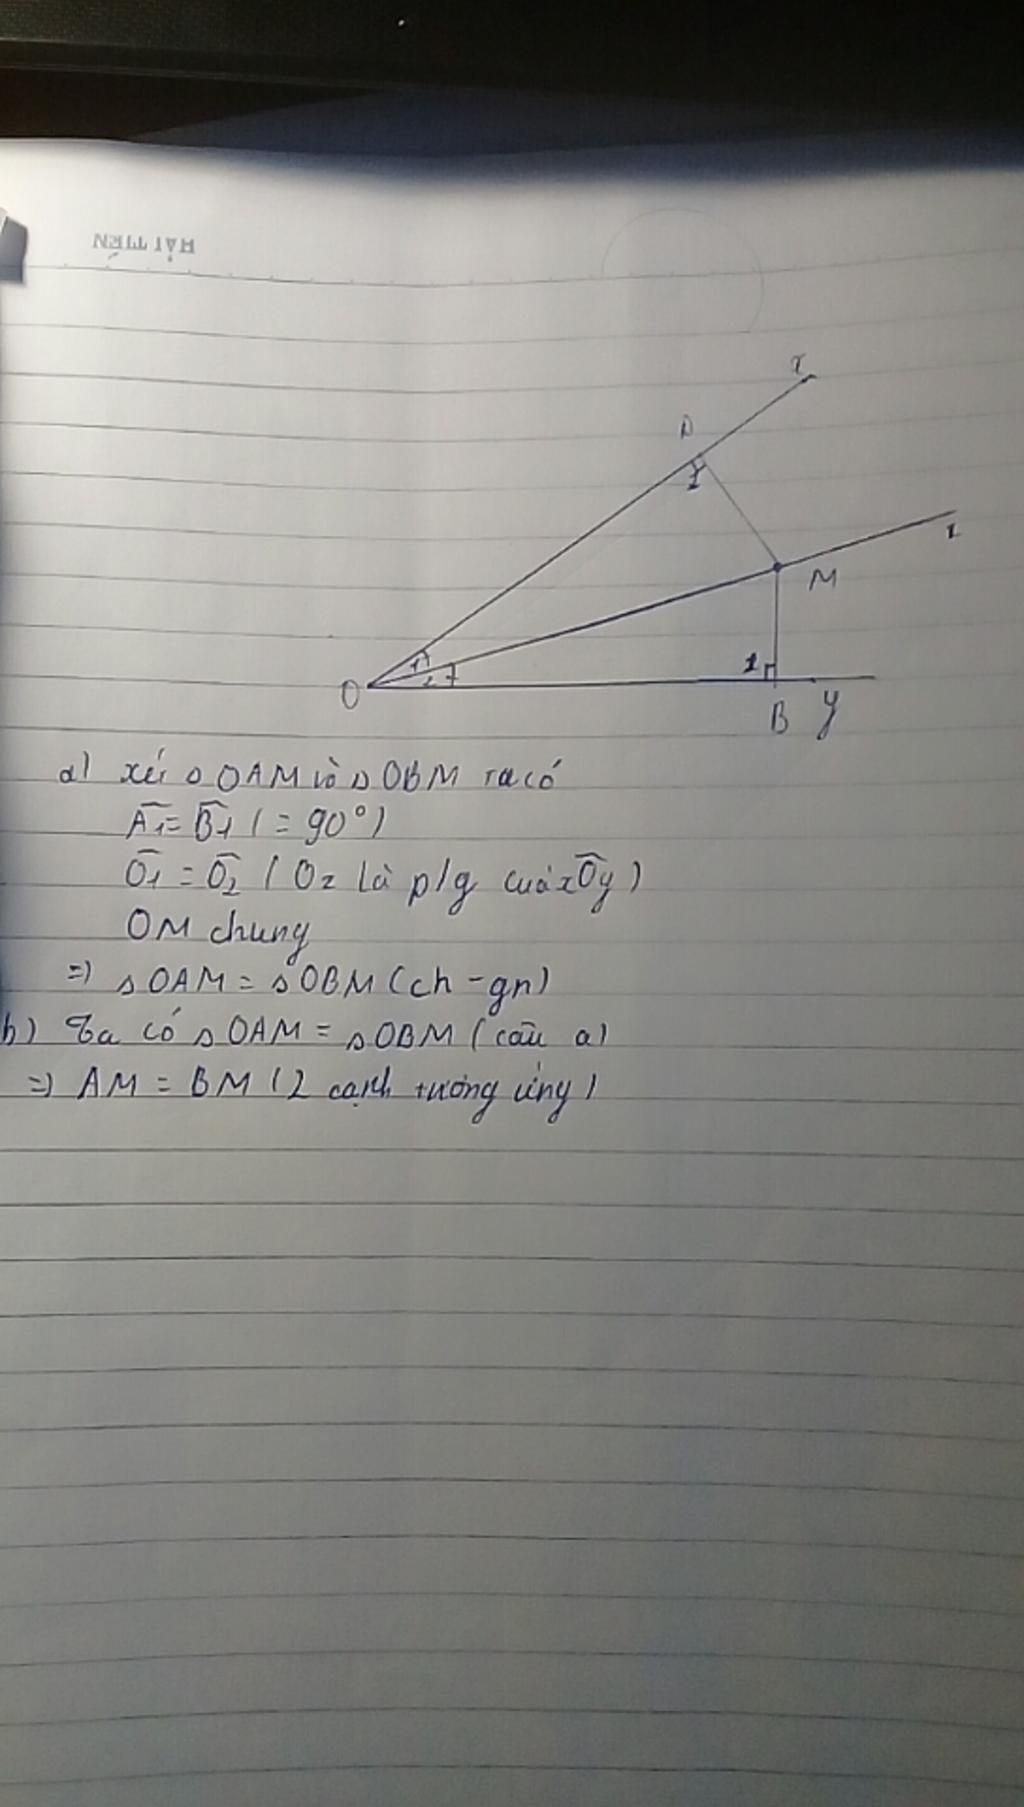 HẢI TIẾN
x
A
1
z
M
1
1
2
O
B
y
a) xét Δ OAM và Δ OBM ta có
Â1 = B̂1 (= 90°)
Ô1 = Ô2 (Oz là p/g của xÔy)
OM chung
=) Δ OAM = Δ OBM (ch - gn)
b) Ta có Δ OAM = Δ OBM (câu a)
=) AM = BM (2 cạnh tương ứng)